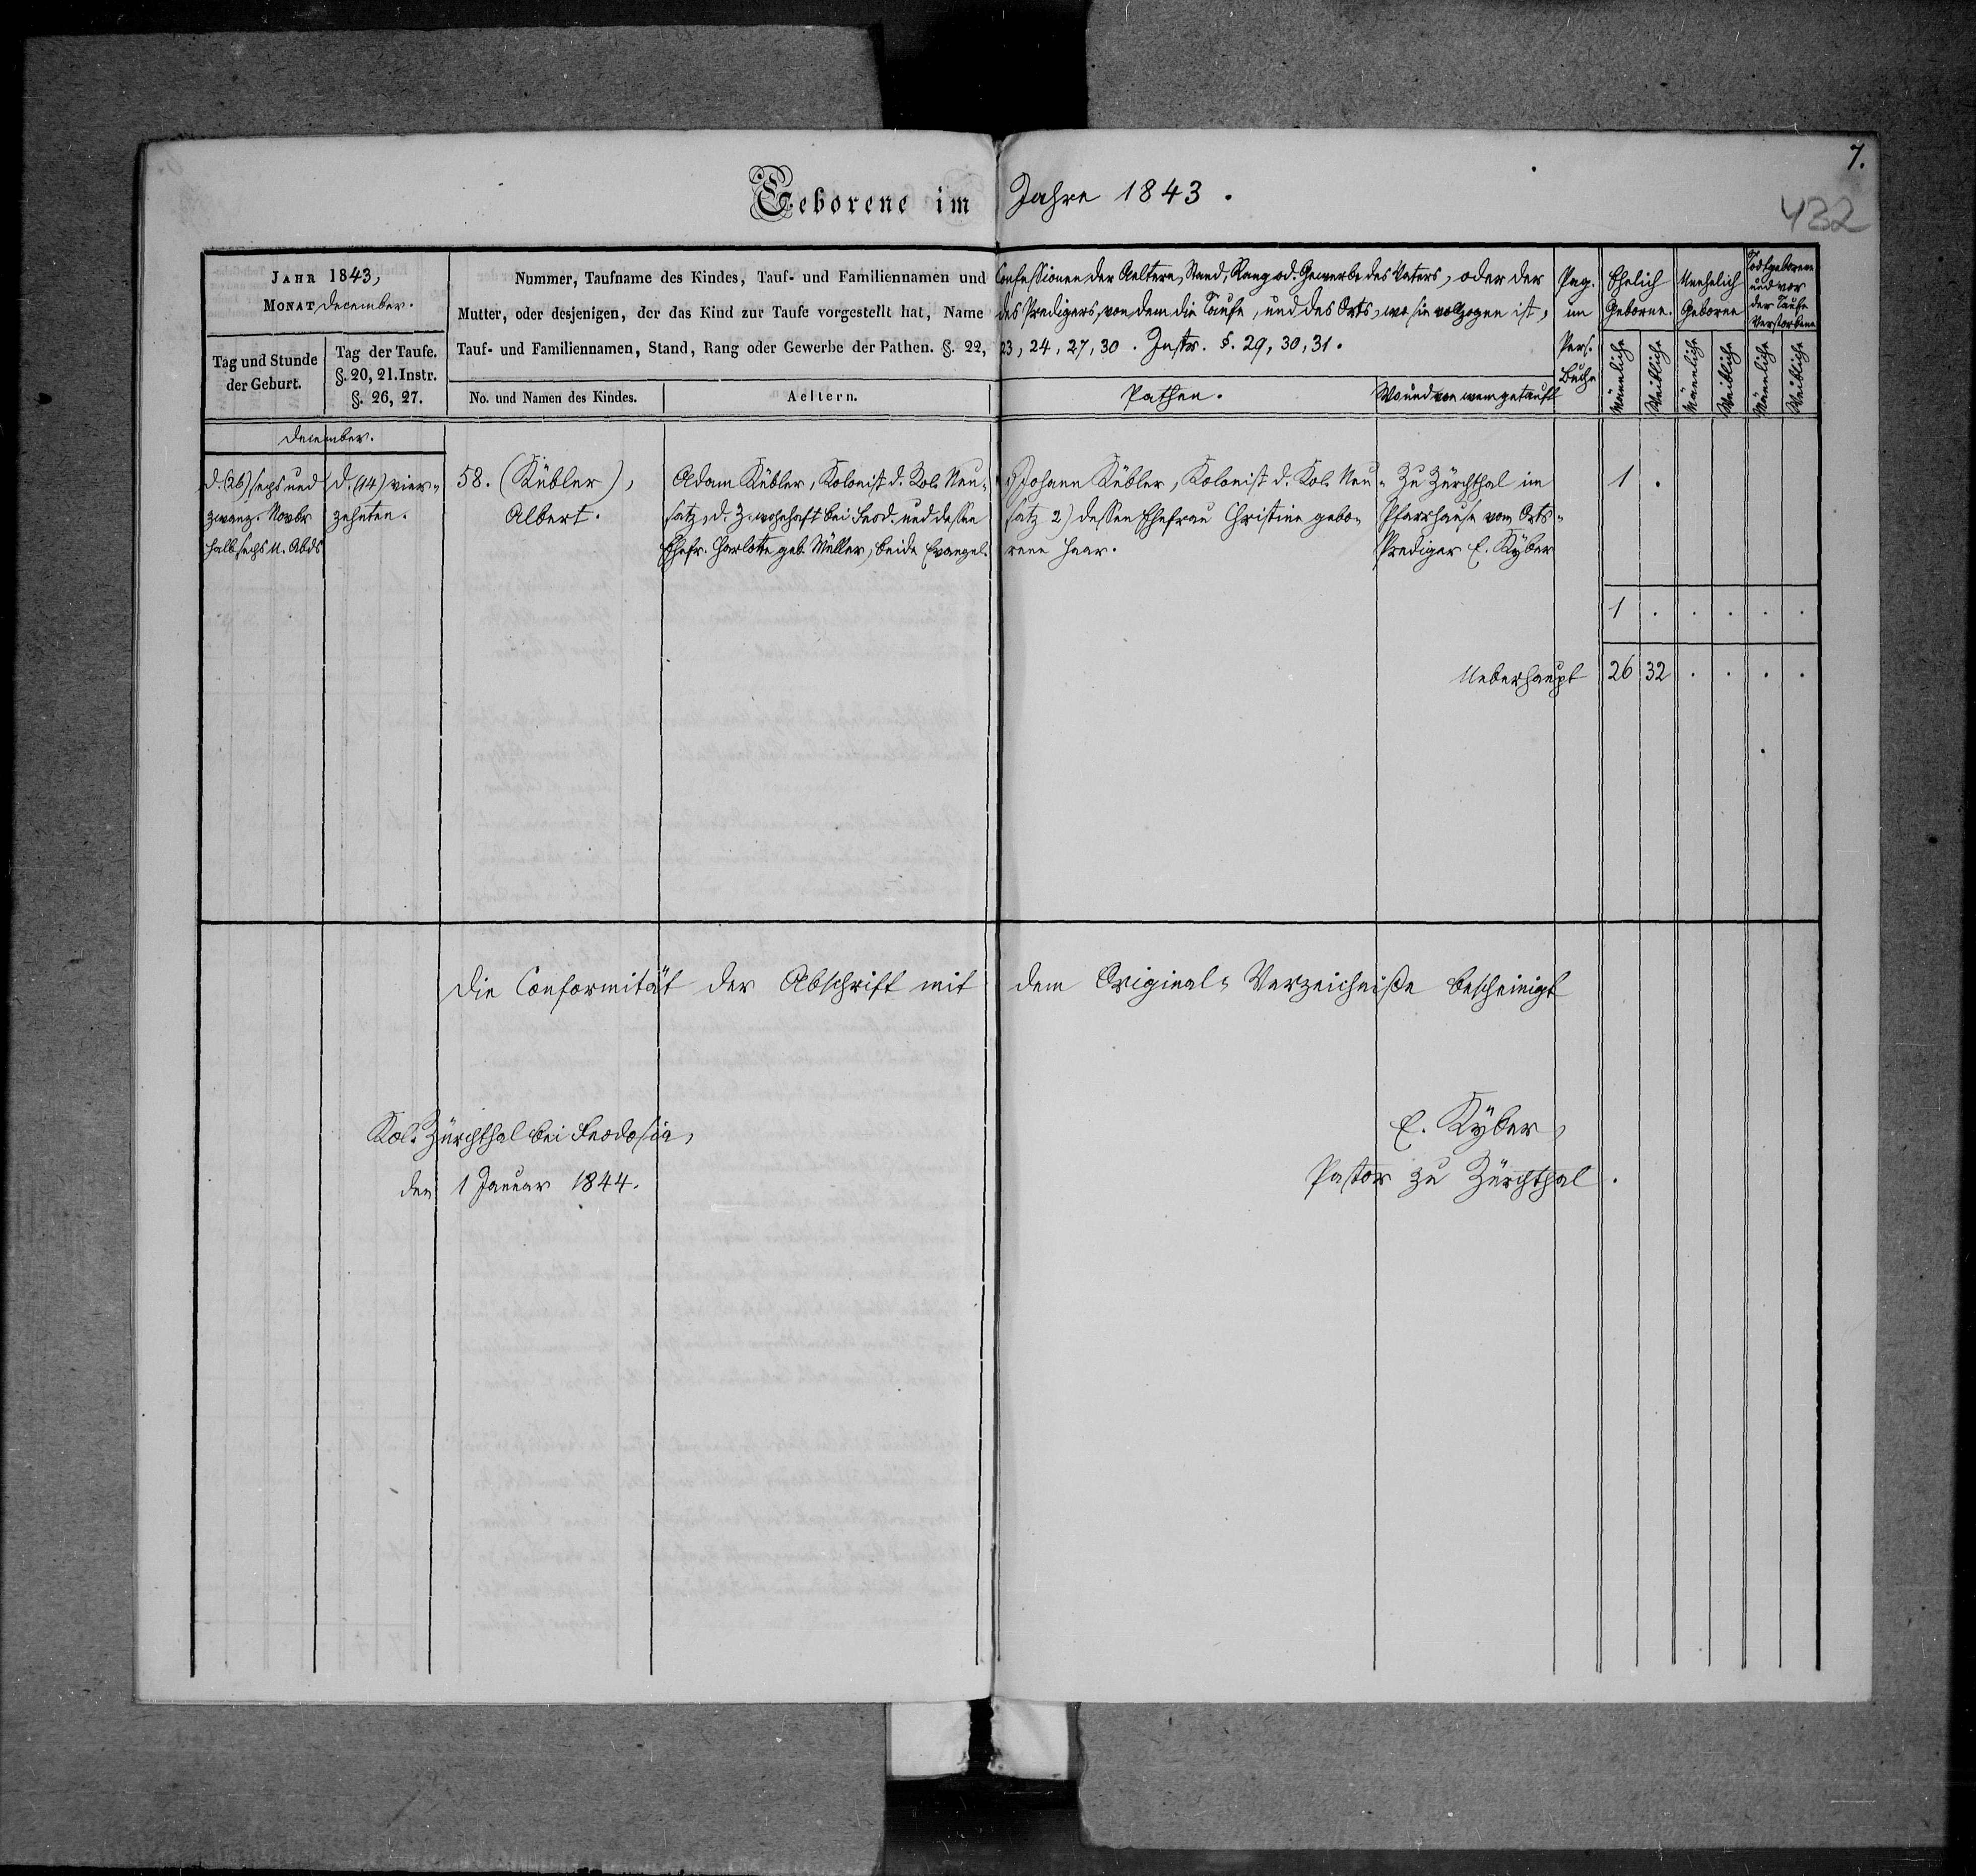 7.
432
Geborene im Jahre 1843.
JAHR 1843,
MONAT December.
Nummer, Taufname des Kindes, Tauf- und Familiennamen und Confessionen der Aeltern, Stand, Rang od. Gewerbe des Vaters, oder der
Mutter, oder desjenigen, der das Kind zur Taufe vorgestellt hat, Name des Predigers, von dem die Taufe, und des Orts, wo sie vollzogen ist,
Tauf- und Familiennamen, Stand, Rang oder Gewerbe der Pathen. §. 22, 23, 24, 27, 30. Instr. §. 29, 30, 31.
Tag und Stunde
der Geburt.
Tag der Taufe.
§. 20, 21. Instr.
§. 26, 27.
No. und Namen des Kindes.
Aeltern.
Pathen.
Wo und von wem getauft
Pag.
im
Pers.
Buche
Ehelich
Geborne.
Unehelich
Geborne
Todtgeborene
und vor
der Taufe
Verstorbene
Männliche
Weibliche
Männliche
Weibliche
Männliche
Weibliche
December.
d. (26) sechs und
zwanz. Novbr
halb sechs U. Abds
d. (14) vier-
zehnten.
58. (Kübler),
Albert.
Adam Kübler, Kolonist d. Kol. Neu-
satz, d. Z. wohnhaft bei Feod. und dessen
Ehefr. Charlotte geb. Müller, beide Evangel.
1) Johann Kübler, Kolonist d. Kol. Neu-
satz 2) dessen Ehefrau Christine gebo-
rene Haar.
Zu Zürchthal im
Pfarrhause vom Orts-
Prediger E. Kyber
1 .
1 . . . . .
Ueberhaupt 26 32 . . . .
Die Conformität der Abschrift mit dem Original-Verzeichniße bescheinigt
Kol. Zürchthal bei Feodosia,
den 1 Januar 1844.
E. Kyber,
Pastor zu Zürchthal.